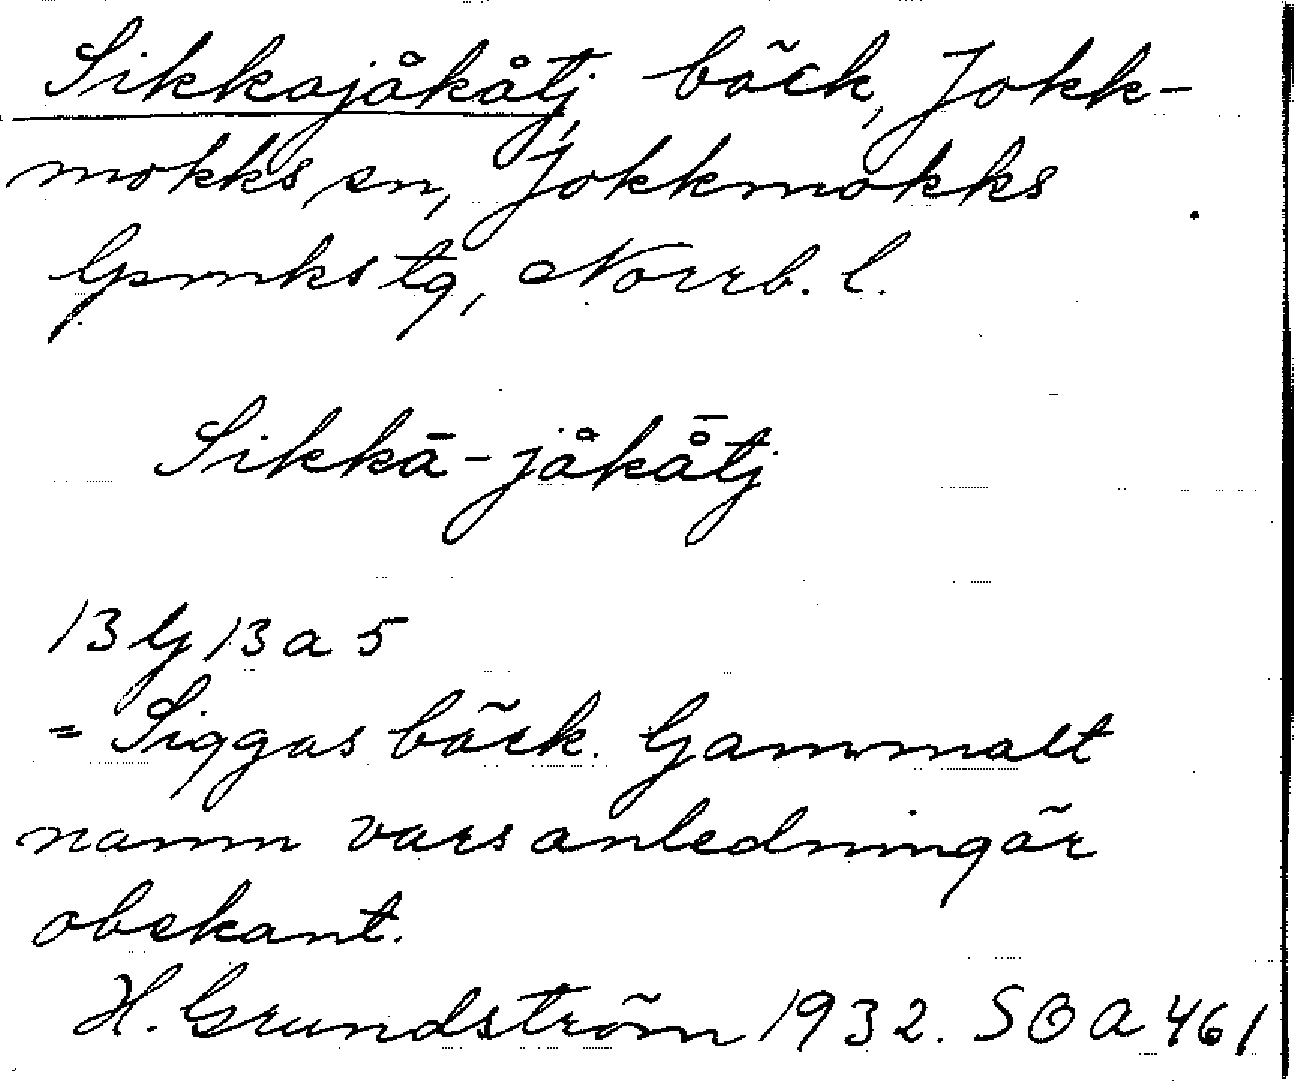 Sikkajåkåtj, bäck, Jokk-
mokks sn, Jokkmokks
lpmks tg, Norrb. l.
Sikkā-jåkå̄tj
13 G 13 a 5
= Siggas bäck. Gammalt
namn vars anledning är
obekant.
H. Grundström 1932. SOA 461